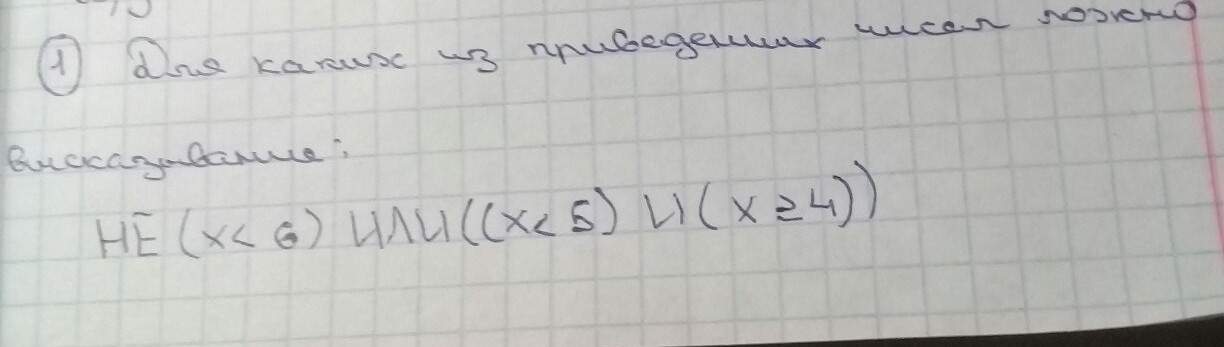 ① Для каких из приведенных чисел ложно
высказывание:
НЕ (х < 6) ИЛИ ((х < 5) И (х ≥ 4))